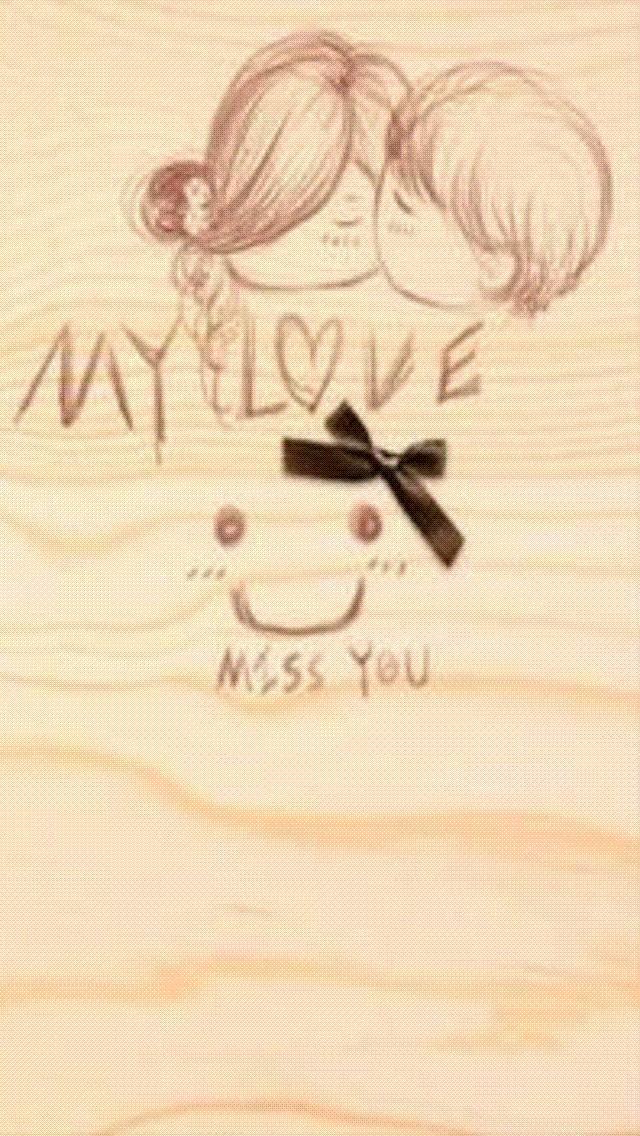 MY LOVE
MISS YOU